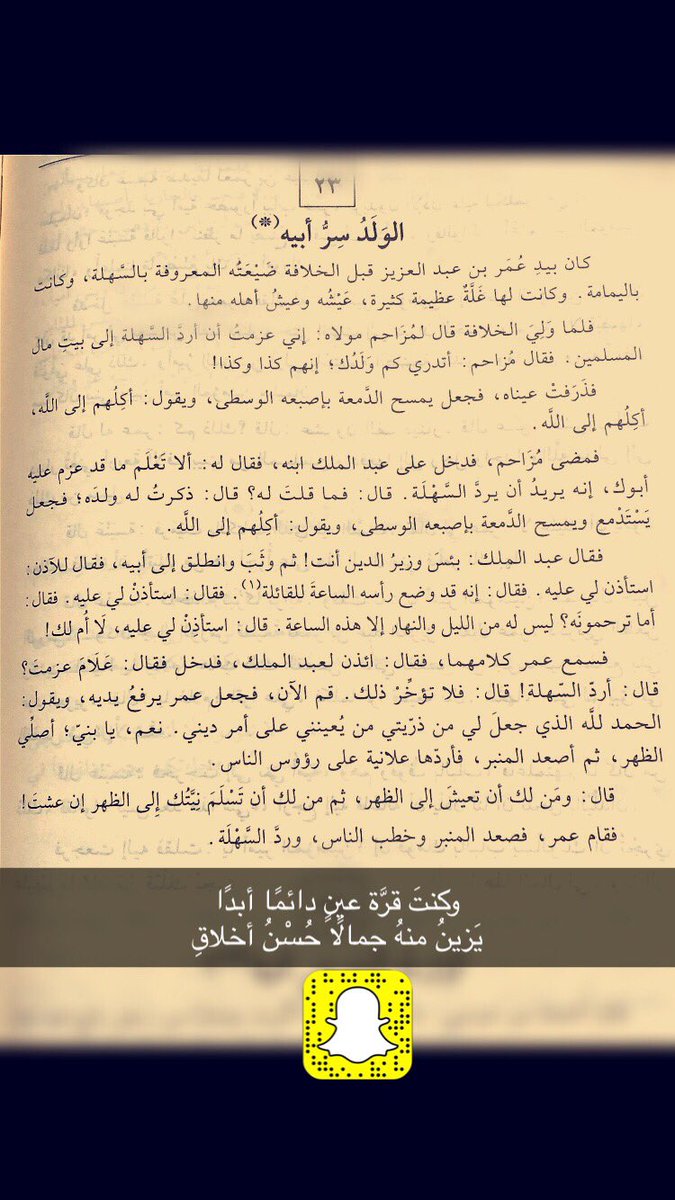 ٢٣
الوَلَدُ سِرُّ أبيه(*)
كان بيدِ عُمَر بن عبد العزيز قبل الخلافة ضَيْعَتُه المعروفة بالسَّهلة، وكانت
باليمامة. وكانت لها غَلَّةٌ عظيمة كثيرة، عَيْشُه وعيشُ أهله منها.
فلما وَلِيَ الخلافة قال لمُزَاحم مولاه: إني عزمتُ أن أردَّ السَّهلة إلى بيتِ مال
المسلمين. فقال مُزاحم: أتدري كم وَلَدُك؛ إنهم كذا وكذا!
فذَرَفتْ عيناه، فجعل يمسح الدَّمعة بإصبعه الوسطى، ويقول: أكِلُهم إلى اللَّه،
أكِلُهم إلى اللَّه.
فمضى مُزَاحم، فدخل على عبد الملك ابنه، فقال له: ألا تَعْلَم ما قد عزم عليه
أبوك، إنه يريدُ أن يردَّ السَّهْلَة. قال: فما قلتَ له؟ قال: ذكرتُ له ولدَه؛ فجعل
يَسْتَدْمع ويمسح الدَّمعة بإصبعه الوسطى، ويقول: أكِلُهم إلى اللَّه.
فقال عبد الملك: بئس وزيرُ الدين أنت! ثم وثَبَ وانطلق إلى أبيه، فقال للآذن:
استأذن لي عليه. فقال: إنه قد وضع رأسه الساعةَ للقائلة(١). فقال: استأذنْ لي عليه. فقال:
أما ترحمونَه؟ ليس له من الليل والنهار إلا هذه الساعة. قال: استأذِنْ لي عليه، لَا أُم لك!
فسمع عمر كلامهما، فقال: ائذن لعبد الملك، فدخل فقال: عَلَامَ عزمتَ؟
قال: أردّ السّهلة! قال: فلا تؤخِّرْ ذلك. قم الآن، فجعل عمر يرفعُ يديه، ويقول:
الحمد للَّه الذي جعلَ لي من ذرّيتي من يُعينني على أمر ديني. نعم، يا بنيّ؛ أصلِّي
الظهر، ثم أصعد المنبر، فأردّها علانية على رؤوس الناس.
قال: ومَن لك أن تعيشَ إلى الظهر، ثم من لك أن تَسْلَمَ نِيَّتُك إلى الظهر إن عشتَ!
فقام عمر، فصعد المنبر وخطب الناس، وردَّ السَّهْلَة.
وكنتَ قرَّة عينٍ دائمًا أبدًا
يَزينُ منهُ جمالًا حُسْنُ أخلاقِ